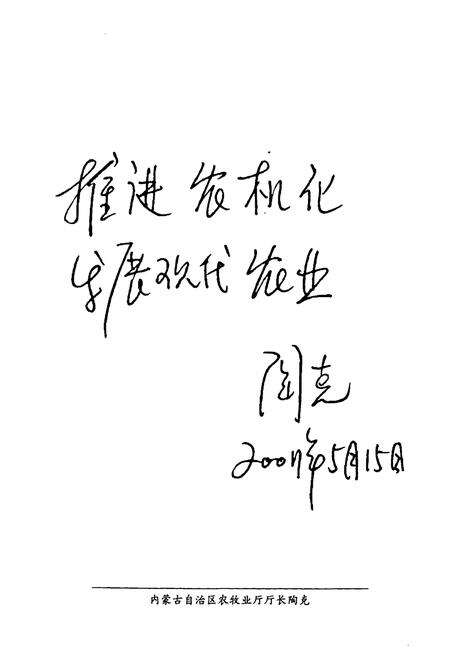 推进农机化
发展现代农业
陶克
2007年5月15日
内蒙古自治区农牧业厅厅长陶克